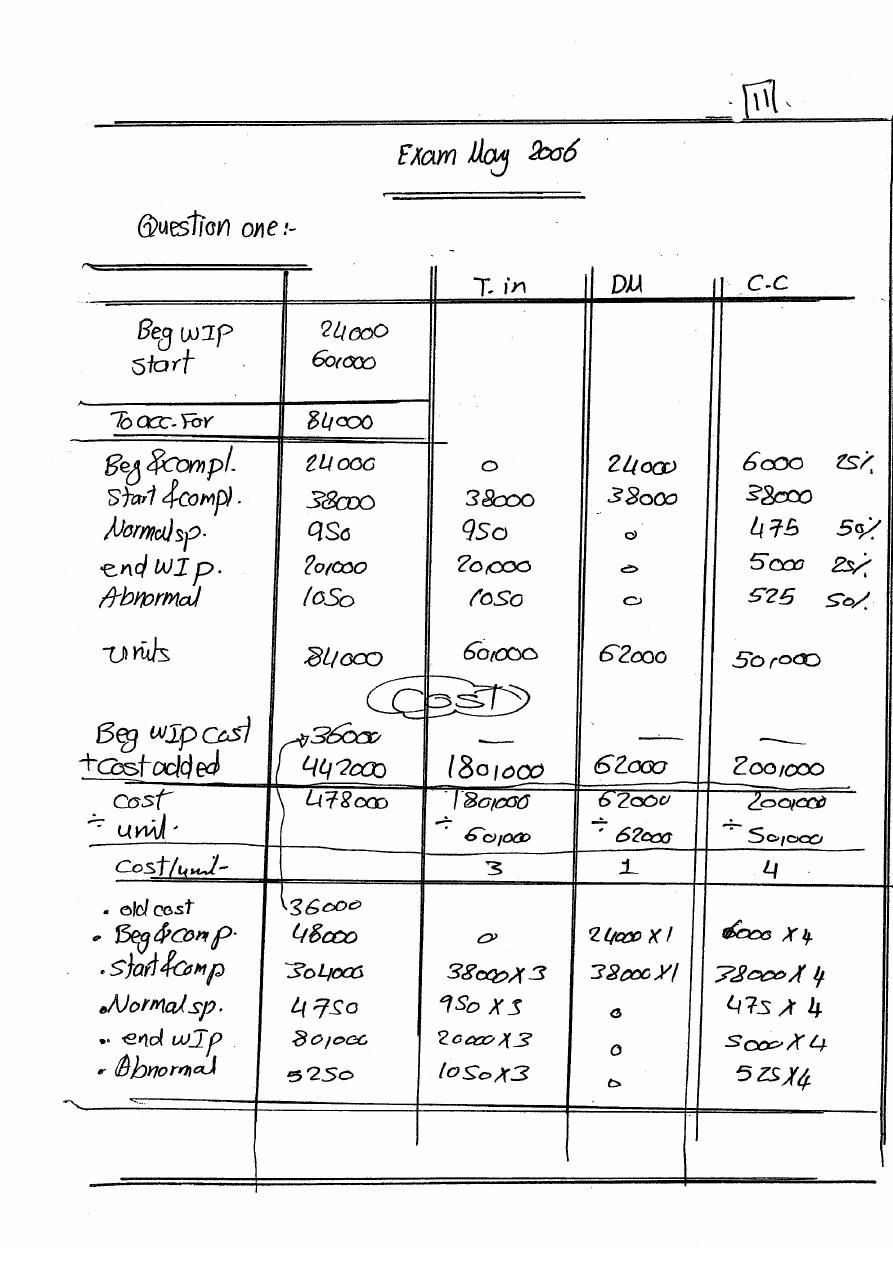 11
Exam May 2006
Question one :-
T. in DM C.C
Beg WIP 24000
Start 60,000
To acc. For 84000
Beg & compl. 24000 0 24000 6000 25%
Start & compl. 38000 38000 38000 38000
Normal sp. 950 950 0 475 50%
end WIP. 20,000 20,000 0 5000 25%
Abnormal 1050 1050 0 525 50%
Units 84000 60,000 62000 50,000
Cost
Beg WIP Cost 36000 — — —
+ Cost added 442000 180,000 62000 200,000
Cost 478000 180,000 62000 200,000
÷ unit. ÷ 60,000 ÷ 62000 ÷ 50,000
Cost/unit 3 1 4
. old cost 36000
. Beg & comp. 48000 0 24000 X 1 6000 X 4
. Start & comp 304000 38000 X 3 38000 X 1 38000 X 4
. Normal sp. 4750 950 X 3 0 475 X 4
. end WIP 80,000 20000 X 3 0 5000 X 4
. Abnormal 5250 1050 X 3 0 525 X 4